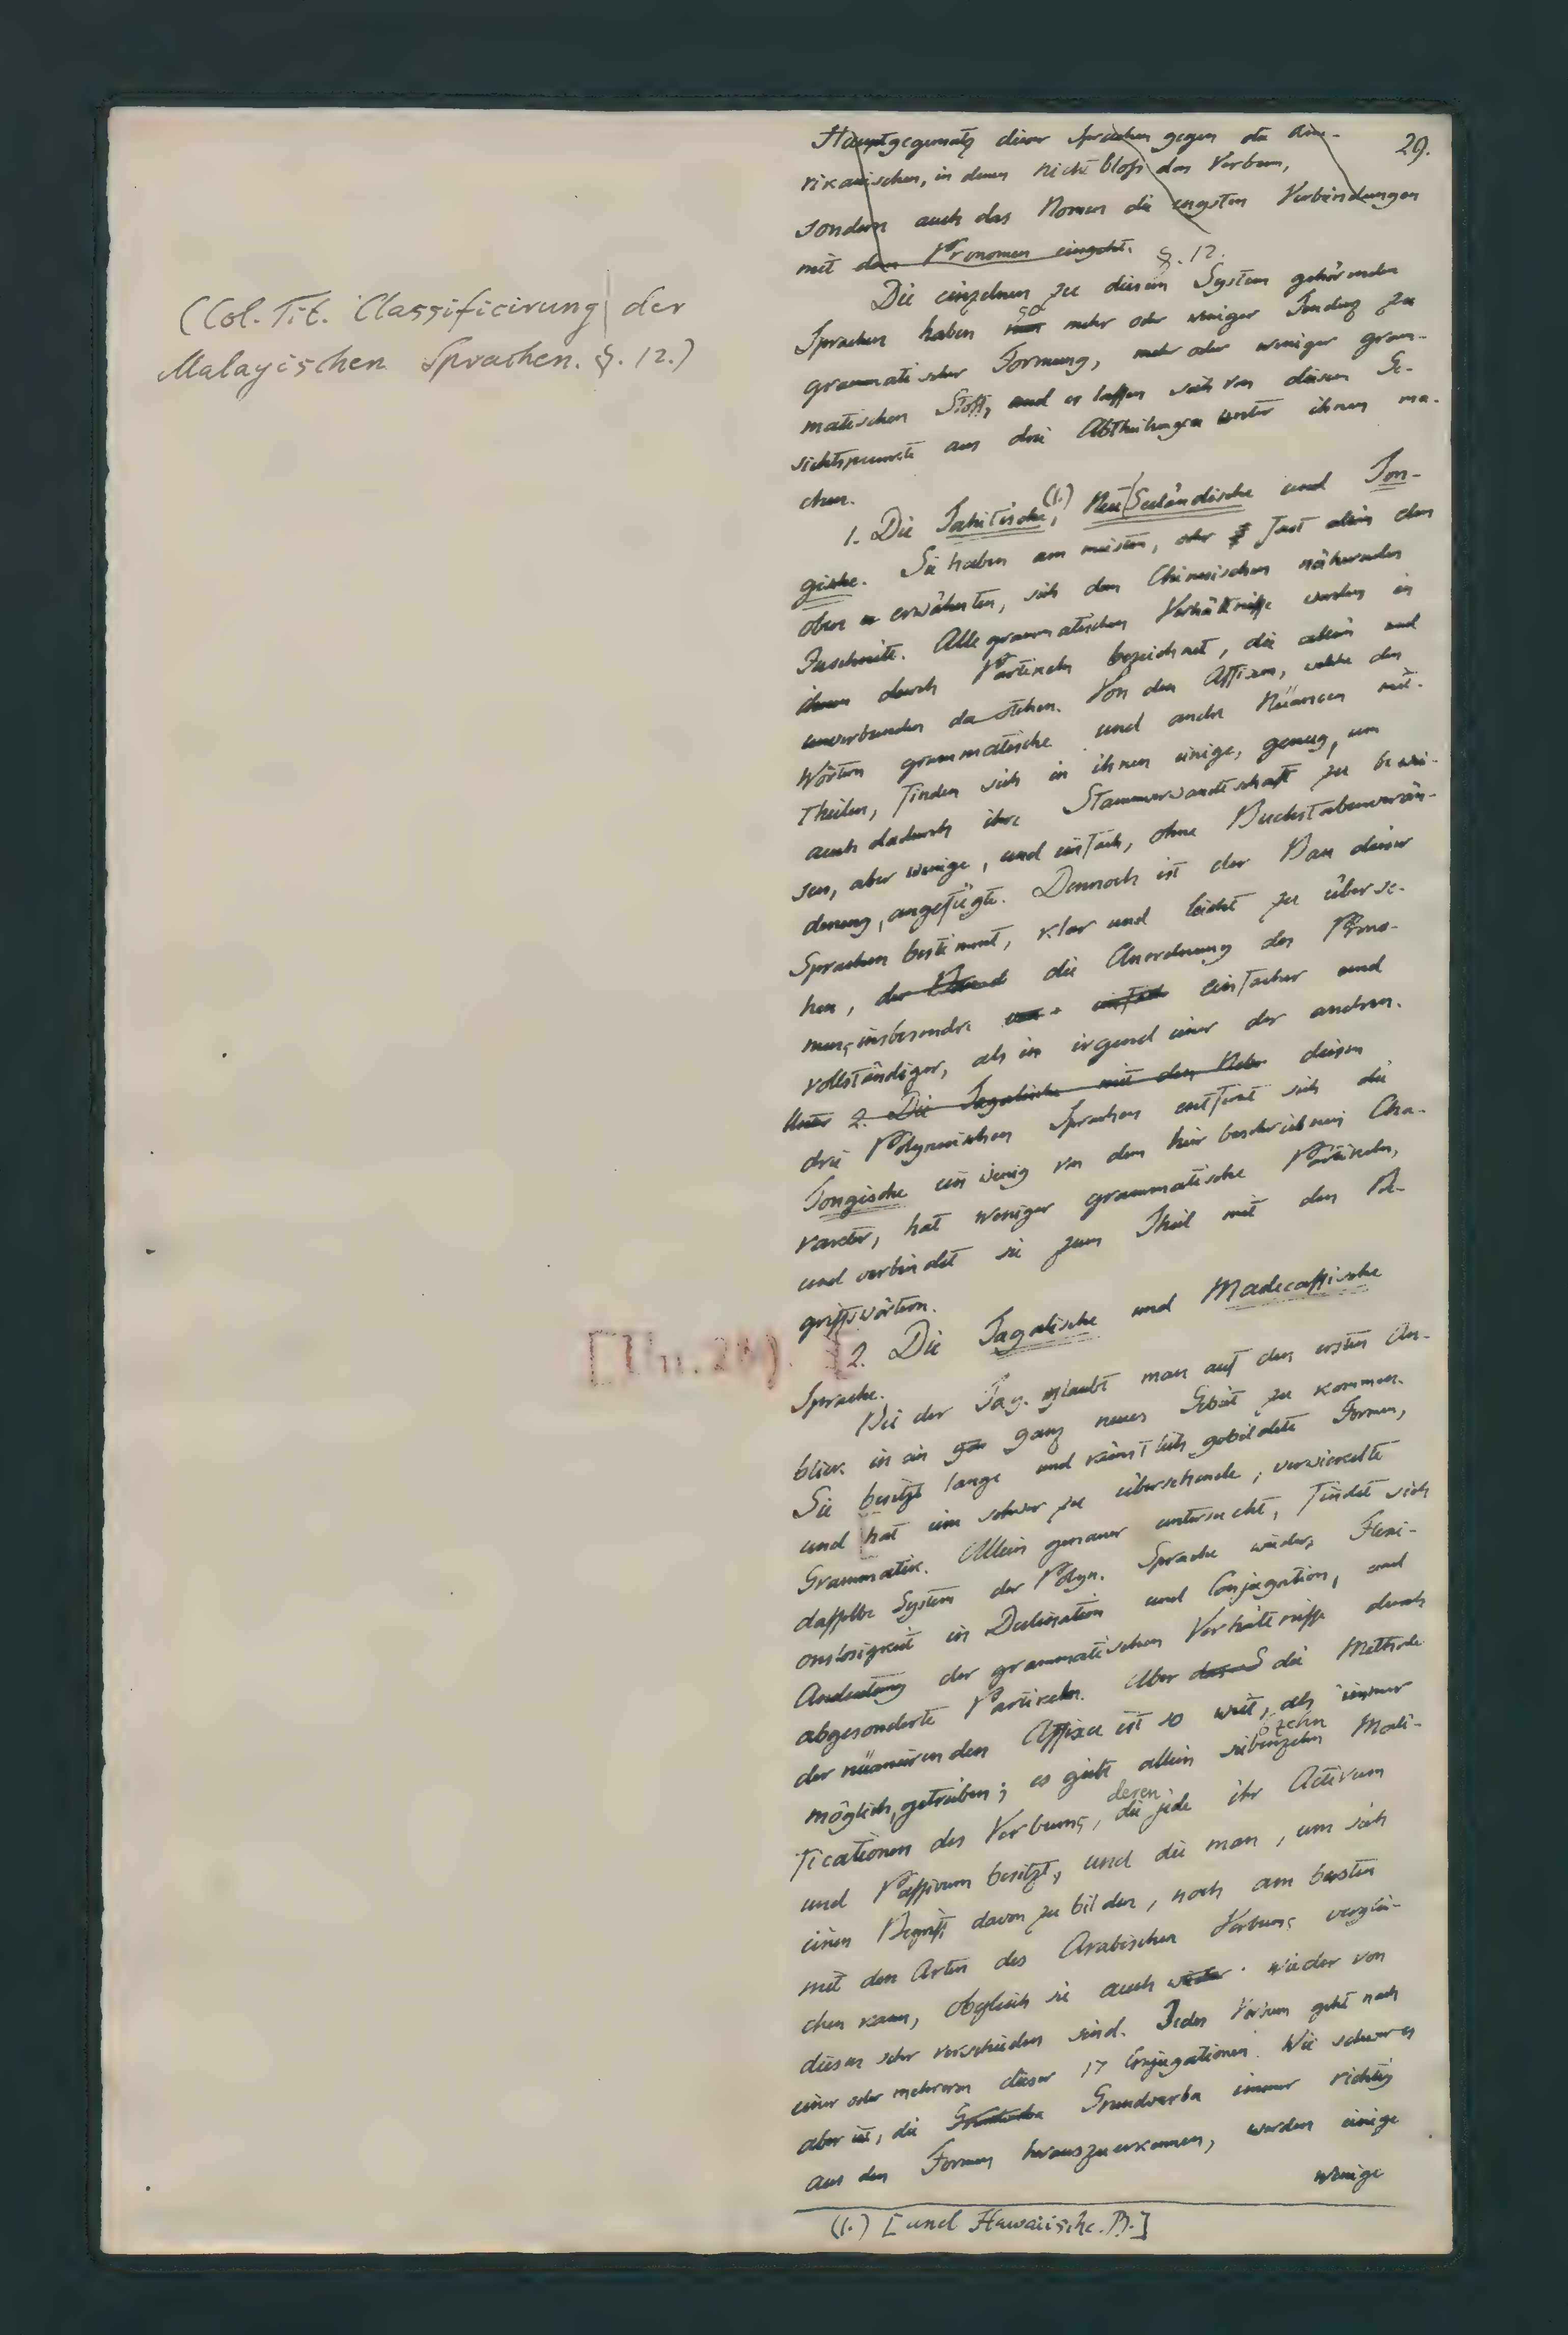 29.
(Col. Tit. Classificirung der
Malayischen Sprachen. §. 12.)
Hauptgegensatz dieser Sprachen gegen die Ame-
rikanischen, in denen nicht bloß das Verbum,
sondern auch das Nomen die engsten Verbindungen
mit dem Pronomen eingeht. §. 12.
Die einzelnen zu diesem System gehörenden
Sprachen haben nun so mehr oder weniger Tendenz zu
grammatischer Formung, mehr oder weniger gram-
matischen Stoff, und es lassen sich von diesem Ge-
sichtspunkte aus drei Abtheilungen unter ihnen ma-
chen.
1. Die Tahitische, (1.) Neu Seeländische und Ton-
gische. Sie haben am meisten, oder fast allein den
oben erwähnten, sich dem Chinesischen nähernden
Zuschnitt. Alle grammatischen Verhältnisse werden in
ihnen durch Partikeln bezeichnet, die allein und
unverbunden da stehen. Von den Affixen, welche den
Wörtern grammatische und andre Nüancen mit-
theilen, finden sich in ihnen einige, genug, um
auch dadurch ihre Stammverwandtschaft zu bewei-
sen, aber wenige, und einfach, ohne Buchstabenverän-
derung, angefügte. Dennoch ist der Bau dieser
Sprachen bestimmt, klar und leicht zu überse-
hen, die Anordnung des Prono-
mens insbesondre einfach einfacher und
vollständiger, als in irgend einer der andren.
Unter 2. Die Tagalische mit den Nebe diesen
drei Polynesischen Sprachen entfernt sich die
Tongische ein wenig von dem hier beschriebnen Cha-
rakter, hat weniger grammatische Partikeln,
und verbindet sie zum Theil mit den Be-
griffswörtern.
2. Die Tagalische und Madecassische
Sprache.
Bei der Tag. glaubt man auf den ersten An-
blick in ein gan ganz neues Gebiet zu kommen.
Sie besitzt lange und künstlich gebildete Formen,
und hat eine schwer zu übersehende, verwickelte
Grammatik. Allein genauer untersucht, findet sich
dasselbe System der Polyn. Sprache wieder, Flexi-
onslosigkeit in Declination und Conjugation, und
Andeutung der grammatischen Verhältnisse durch
abgesonderte Partikeln. Aber das S die Methode
der nüancirenden Affixa ist so weit, als immer
möglich, getrieben; es giebt allein siebenzehn zehn Modi-
ficationen des Verbums, die deren jede ihr Activum
und Passivum besitzt, und die man, um sich
einen Begriff davon zu bilden, noch am besten
mit den Arten des Arabischen Verbums verglei-
chen kann, obgleich sie auch wieder wieder von
diesen sehr verschieden sind. Jedes Verbum geht nach
einer oder mehreren dieser 17 Conjugationen. Wie schwer es
aber ist, die Grundverba immer richtig
aus den Formen herauszuerkennen, werden einige
wenige
(1.) [und Hawaiische. B.]